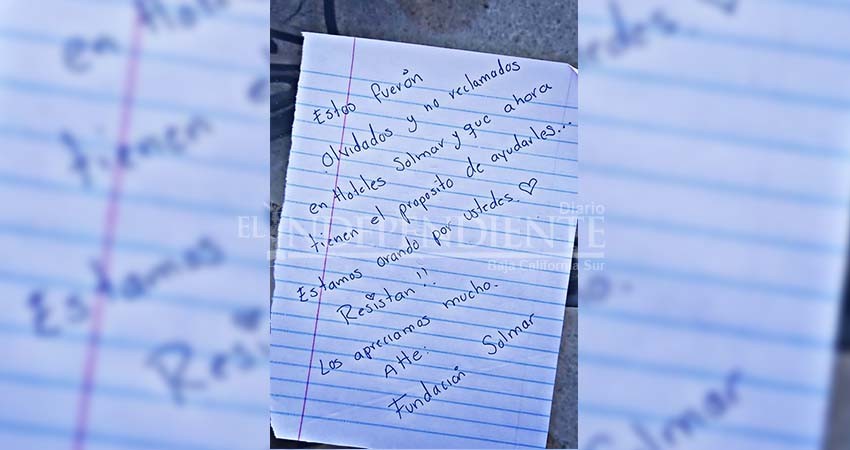 Estos fuerón
olvidados y no reclamados
en Hoteles Solmar y que ahora
tienen el proposito de ayudarles...
Estamos orando por ustedes ♡
Resistan!!
Los apreciamos mucho.
Atte:
Fundación Solmar
Diario
EL INDEPENDIENTE
Baja California Sur